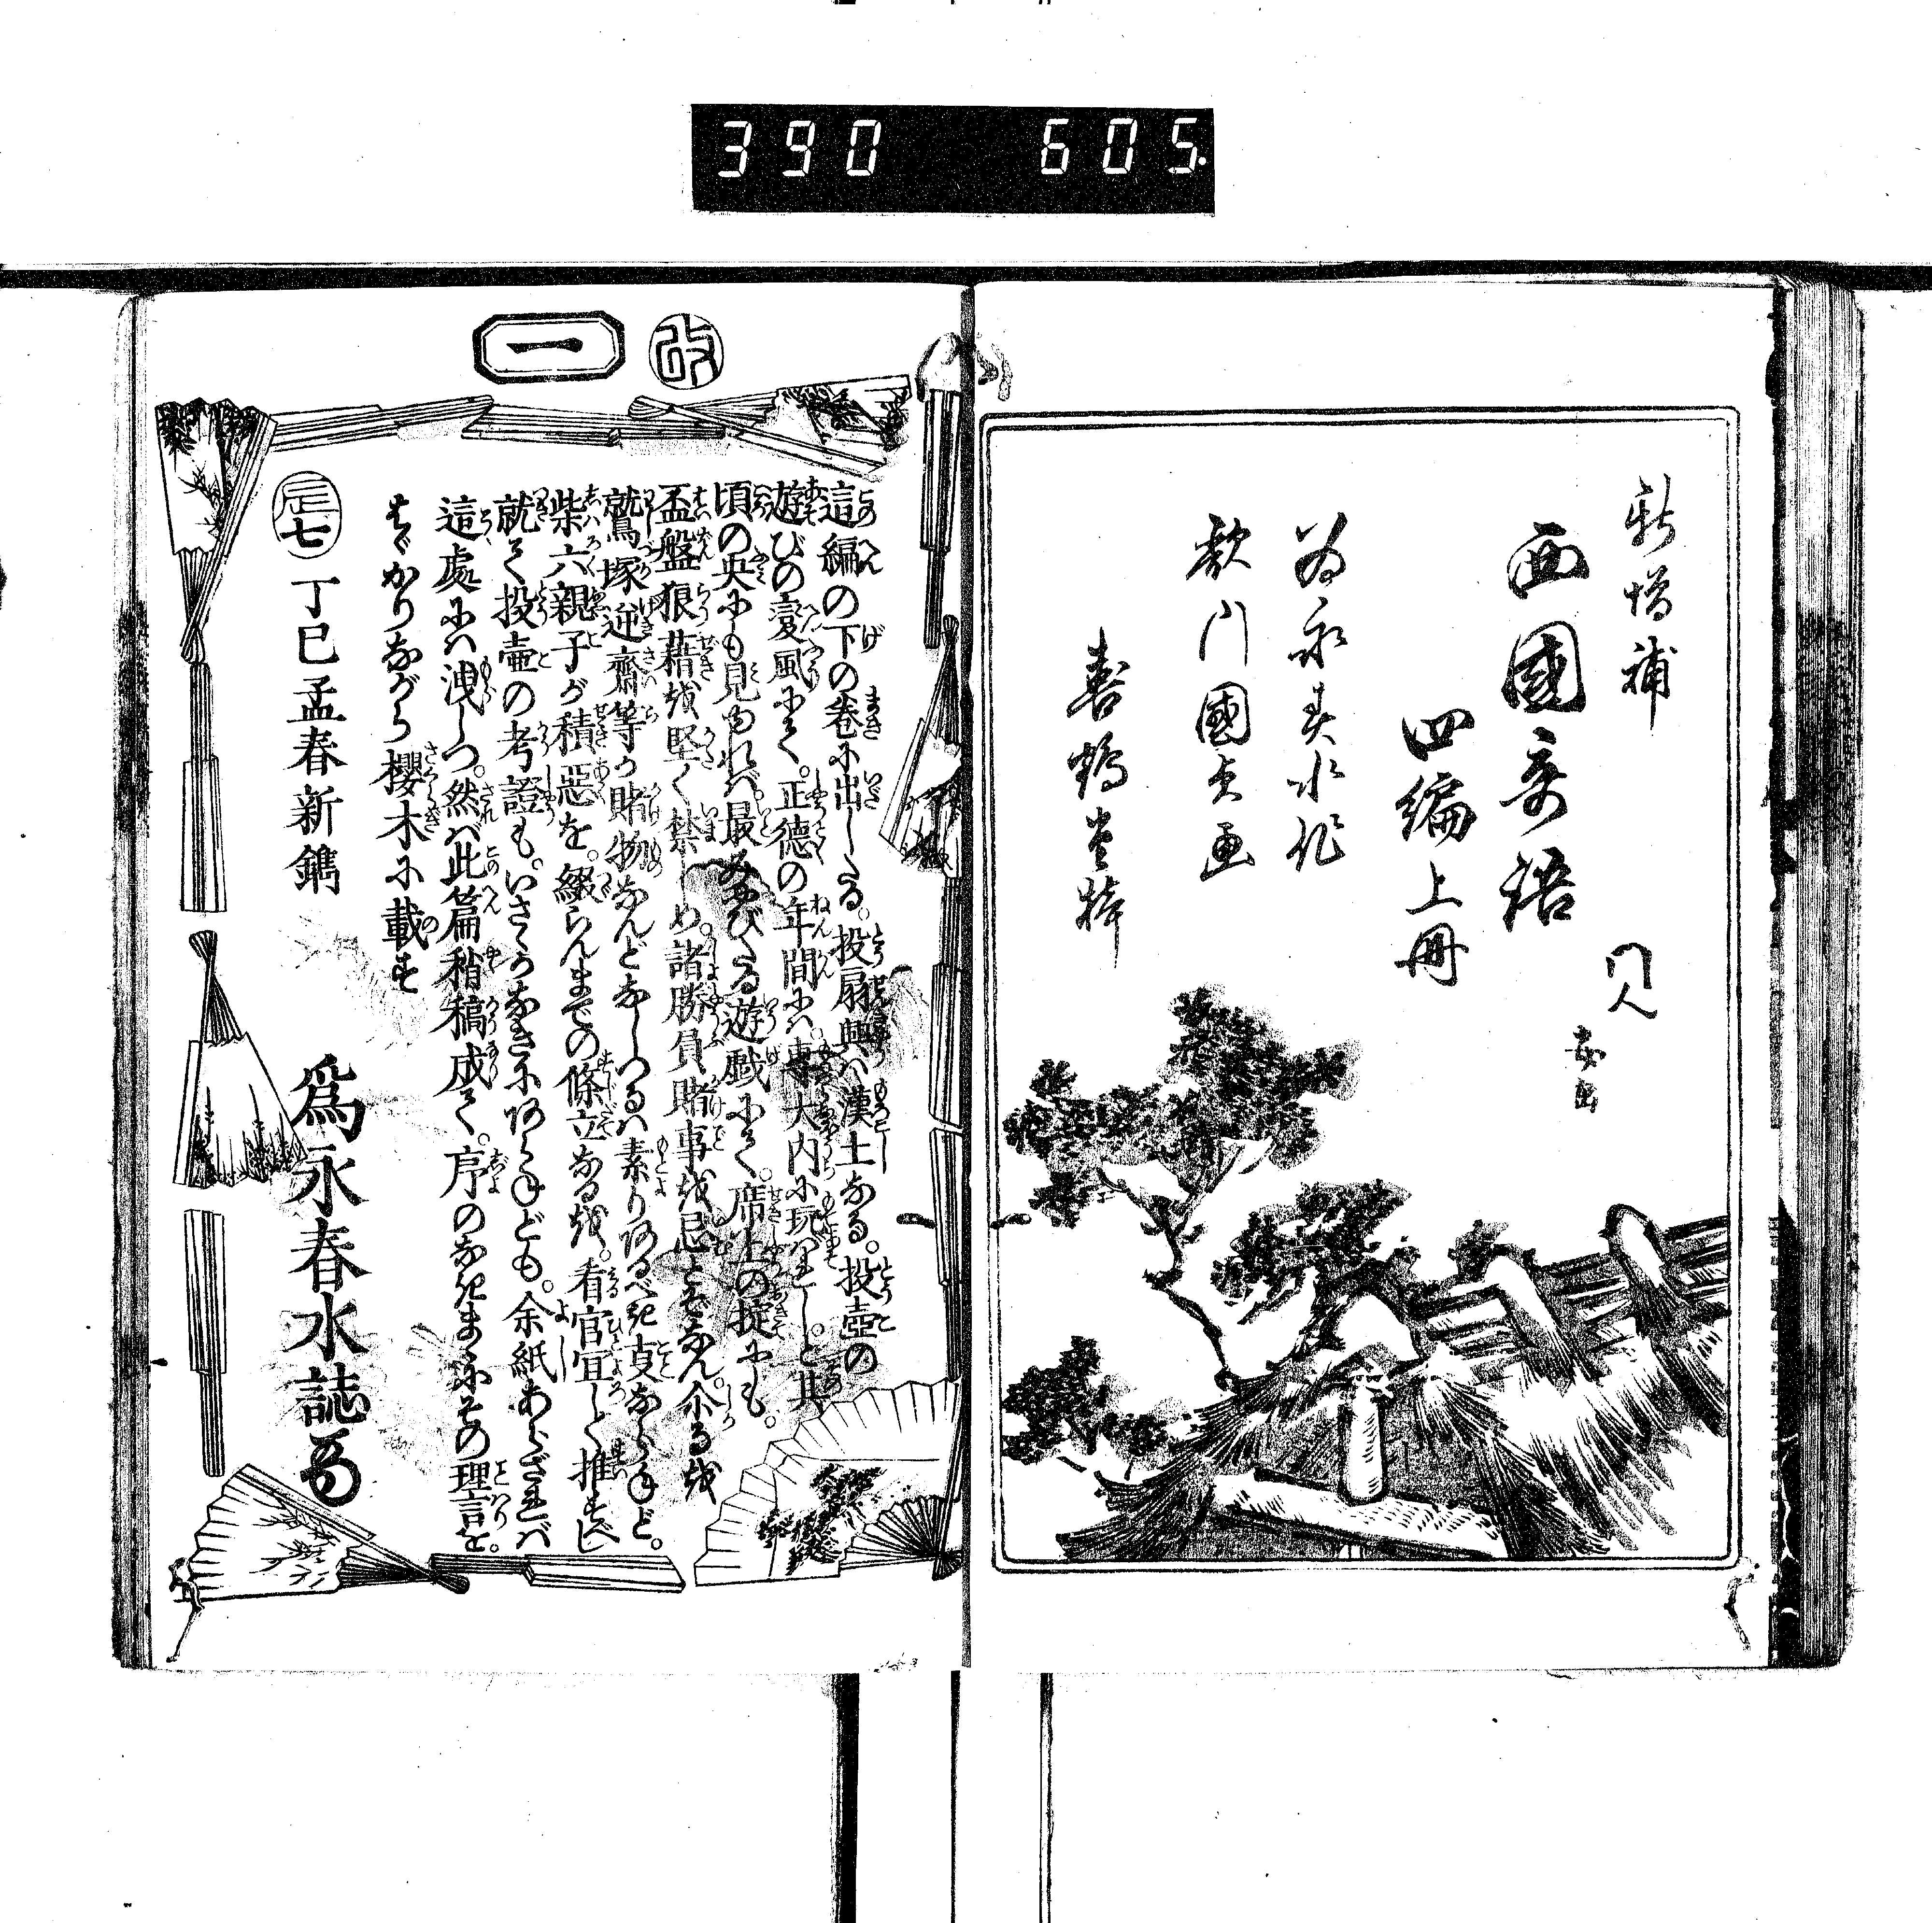 390 605.
新増補
西國奇語
四編上冊
為永春水作
歌川國貞画
喜鶴堂梓
改
一
這編の下の巻に出したる。投扇興ハ漢土なる。投壺の
遊びの変風にて。正徳の年間にハ。専大内に玩バれしと。其
頃の史にも見ゆれバ。最みやびたる遊戯にて。席上の掟にも。
盃盤狼藉を堅く禁しめ。諸勝負賭事を忌とぞなん。尓るを
鷲塚逆齋等が賭物なんどなしつるハ素りあるべき支ならねど。
柴六親子が積悪を。綴らんまでの條立なるを。看官宜しく推すべし
就て投壺の考證も。いさゝかなきにあらねども。余紙あらざれバ
這處にハ洩しつ。然バ此篇稍稿成て。序のなきまゝにその理言を。
すぐかりながら櫻木に載す
巳七
丁巳孟春新鐫
為永春水誌